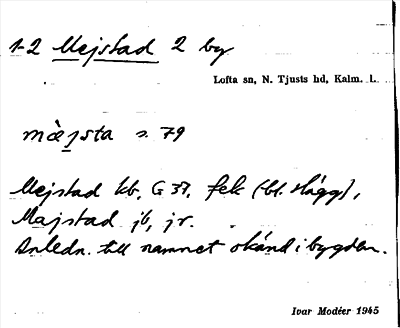 1-2 Mejstad 2 by
Lofta sn, N. Tjusts hd, Kalm. L.
mæ̀jsta s. 79
Mejstad kb, G 37, fek (bl. slägg),
Majstad jb, jr.
Anledn. till namnet okänd i bygden.
Ivar Modéer 1945